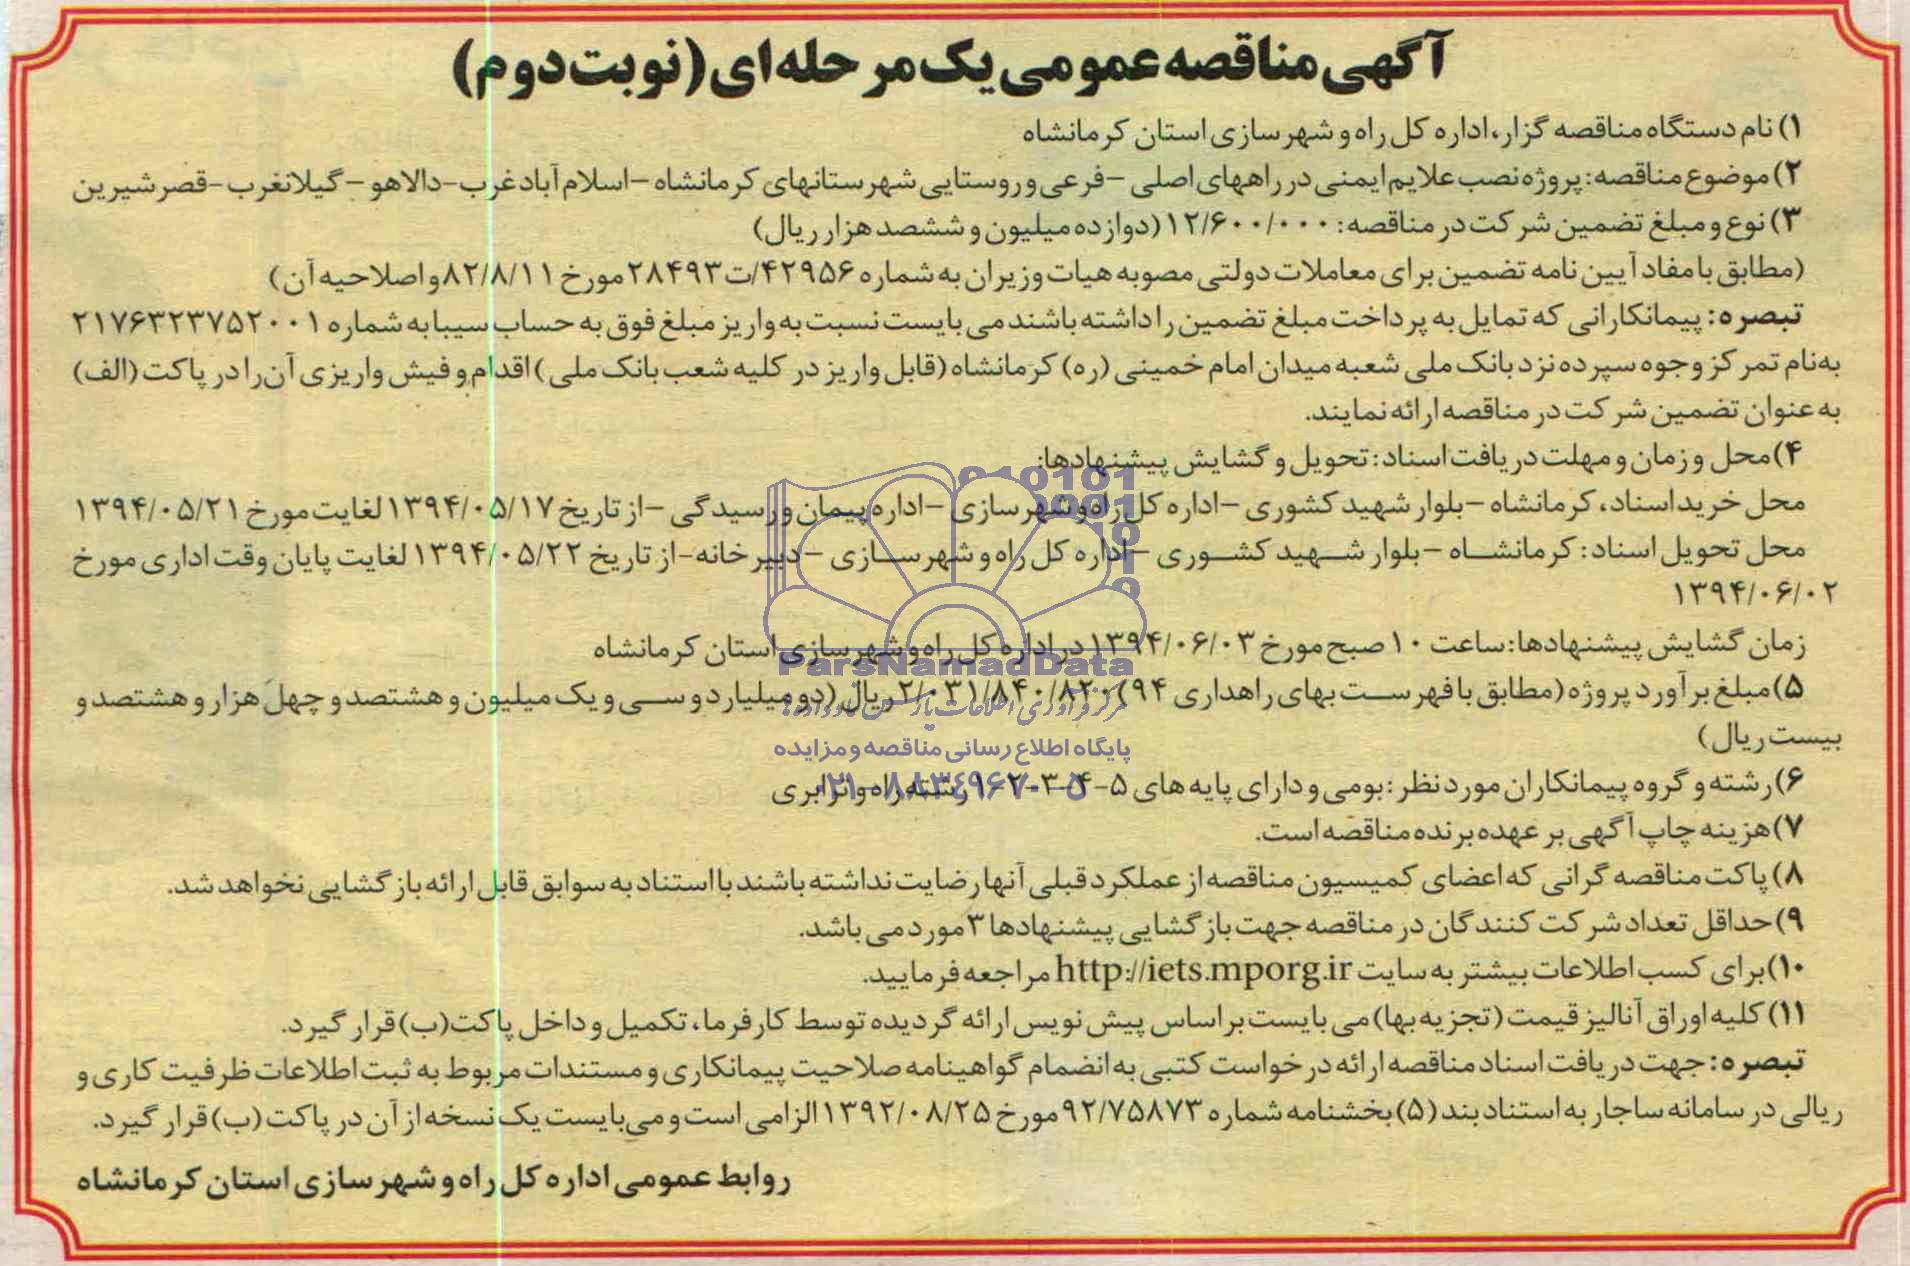 آگهی مناقصه عمومی یک مرحله ای (نوبت دوم)
۱) نام دستگاه مناقصه گزار، اداره کل راه و شهرسازی استان کرمانشاه
۲) موضوع مناقصه: پروژه نصب علایم ایمنی در راههای اصلی – فرعی و روستایی شهرستانهای کرمانشاه – اسلام آباد غرب – دالاهو – گیلانغرب – قصرشیرین
۳) نوع و مبلغ تضمین شرکت در مناقصه: ۱۲/۶۰۰/۰۰۰ (دوازده میلیون و ششصد هزار ریال)
(مطابق با مفاد آیین نامه تضمین برای معاملات دولتی مصوبه هیات وزیران به شماره ۴۲۹۵۶/ت۲۸۴۹۳ مورخ ۸۲/۸/۱۱ و اصلاحیه آن)
تبصره: پیمانکارانی که تمایل به پرداخت مبلغ تضمین را داشته باشند می بایست نسبت به واریز مبلغ فوق به حساب سیبا به شماره ۲۱۷۶۳۲۳۷۵۲۰۰۱
به نام تمرکز وجوه سپرده نزد بانک ملی شعبه میدان امام خمینی (ره) کرمانشاه (قابل واریز در کلیه شعب بانک ملی) اقدام و فیش واریزی آن را در پاکت (الف)
به عنوان تضمین شرکت در مناقصه ارائه نمایند.
۴) محل و زمان و مهلت دریافت اسناد: تحویل و گشایش پیشنهادها:
محل خرید اسناد، کرمانشاه – بلوار شهید کشوری – اداره کل راه و شهرسازی – اداره پیمان و رسیدگی – از تاریخ ۱۳۹۴/۰۵/۱۷ لغایت مورخ ۱۳۹۴/۰۵/۲۱
محل تحویل اسناد: کرمانشاه – بلوار شهید کشوری – اداره کل راه و شهرسازی – دبیرخانه – از تاریخ ۱۳۹۴/۰۵/۲۲ لغایت پایان وقت اداری مورخ
۱۳۹۴/۰۶/۰۲
زمان گشایش پیشنهادها: ساعت ۱۰ صبح مورخ ۱۳۹۴/۰۶/۰۳ در اداره کل راه و شهرسازی استان کرمانشاه
ParsNamadData
۵) مبلغ برآورد پروژه (مطابق با فهرست بهای راهداری ۹۴) ۲/۰۳۱/۸۴۰/۸۲۰ ریال (دو میلیارد و سی و یک میلیون و هشتصد و چهل هزار و هشتصد و
بیست ریال)
پایگاه اطلاع رسانی مناقصه و مزایده
۶) رشته و گروه پیمانکاران مورد نظر: بومی و دارای پایه های ۵-۴-۳-۲-۱ رشته راه و ترابری
۰۲۱-۸۸۳۴۹۶۷۰-۵
۷) هزینه چاپ آگهی بر عهده برنده مناقصه است.
۸) پاکت مناقصه گرانی که اعضای کمیسیون مناقصه از عملکرد قبلی آنها رضایت نداشته باشند با استناد به سوابق قابل ارائه بازگشایی نخواهد شد.
۹) حداقل تعداد شرکت کنندگان در مناقصه جهت بازگشایی پیشنهادها ۳ مورد می باشد.
۱۰) برای کسب اطلاعات بیشتر به سایت http://iets.mporg.ir مراجعه فرمایید.
۱۱) کلیه اوراق آنالیز قیمت (تجزیه بها) می بایست بر اساس پیش نویس ارائه گردیده توسط کارفرما، تکمیل و داخل پاکت (ب) قرار گیرد.
تبصره: جهت دریافت اسناد مناقصه ارائه درخواست کتبی به انضمام گواهینامه صلاحیت پیمانکاری و مستندات مربوط به ثبت اطلاعات ظرفیت کاری و
ریالی در سامانه ساجار به استناد بند (۵) بخشنامه شماره ۹۲/۷۵۸۷۳ مورخ ۱۳۹۲/۰۸/۲۵ الزامی است و می بایست یک نسخه از آن در پاکت (ب) قرار گیرد.
روابط عمومی اداره کل راه و شهرسازی استان کرمانشاه